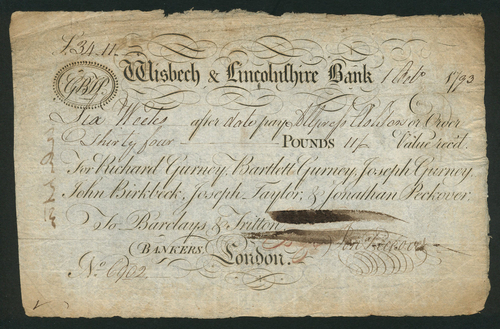 £34.11.
Wisbech & Lincolnshire Bank 1 Octo 1793
Six Weeks after date pay or Order
Thirty four POUNDS 11/ Value recd.
For Richard Gurney, Bartlett Gurney, Joseph Gurney,
John Birkbeck, Joseph Taylor, & Jonathan Peckover.
To Barclays, & Tritton
BANKERS, London.
Jon Peckover
No. 6902